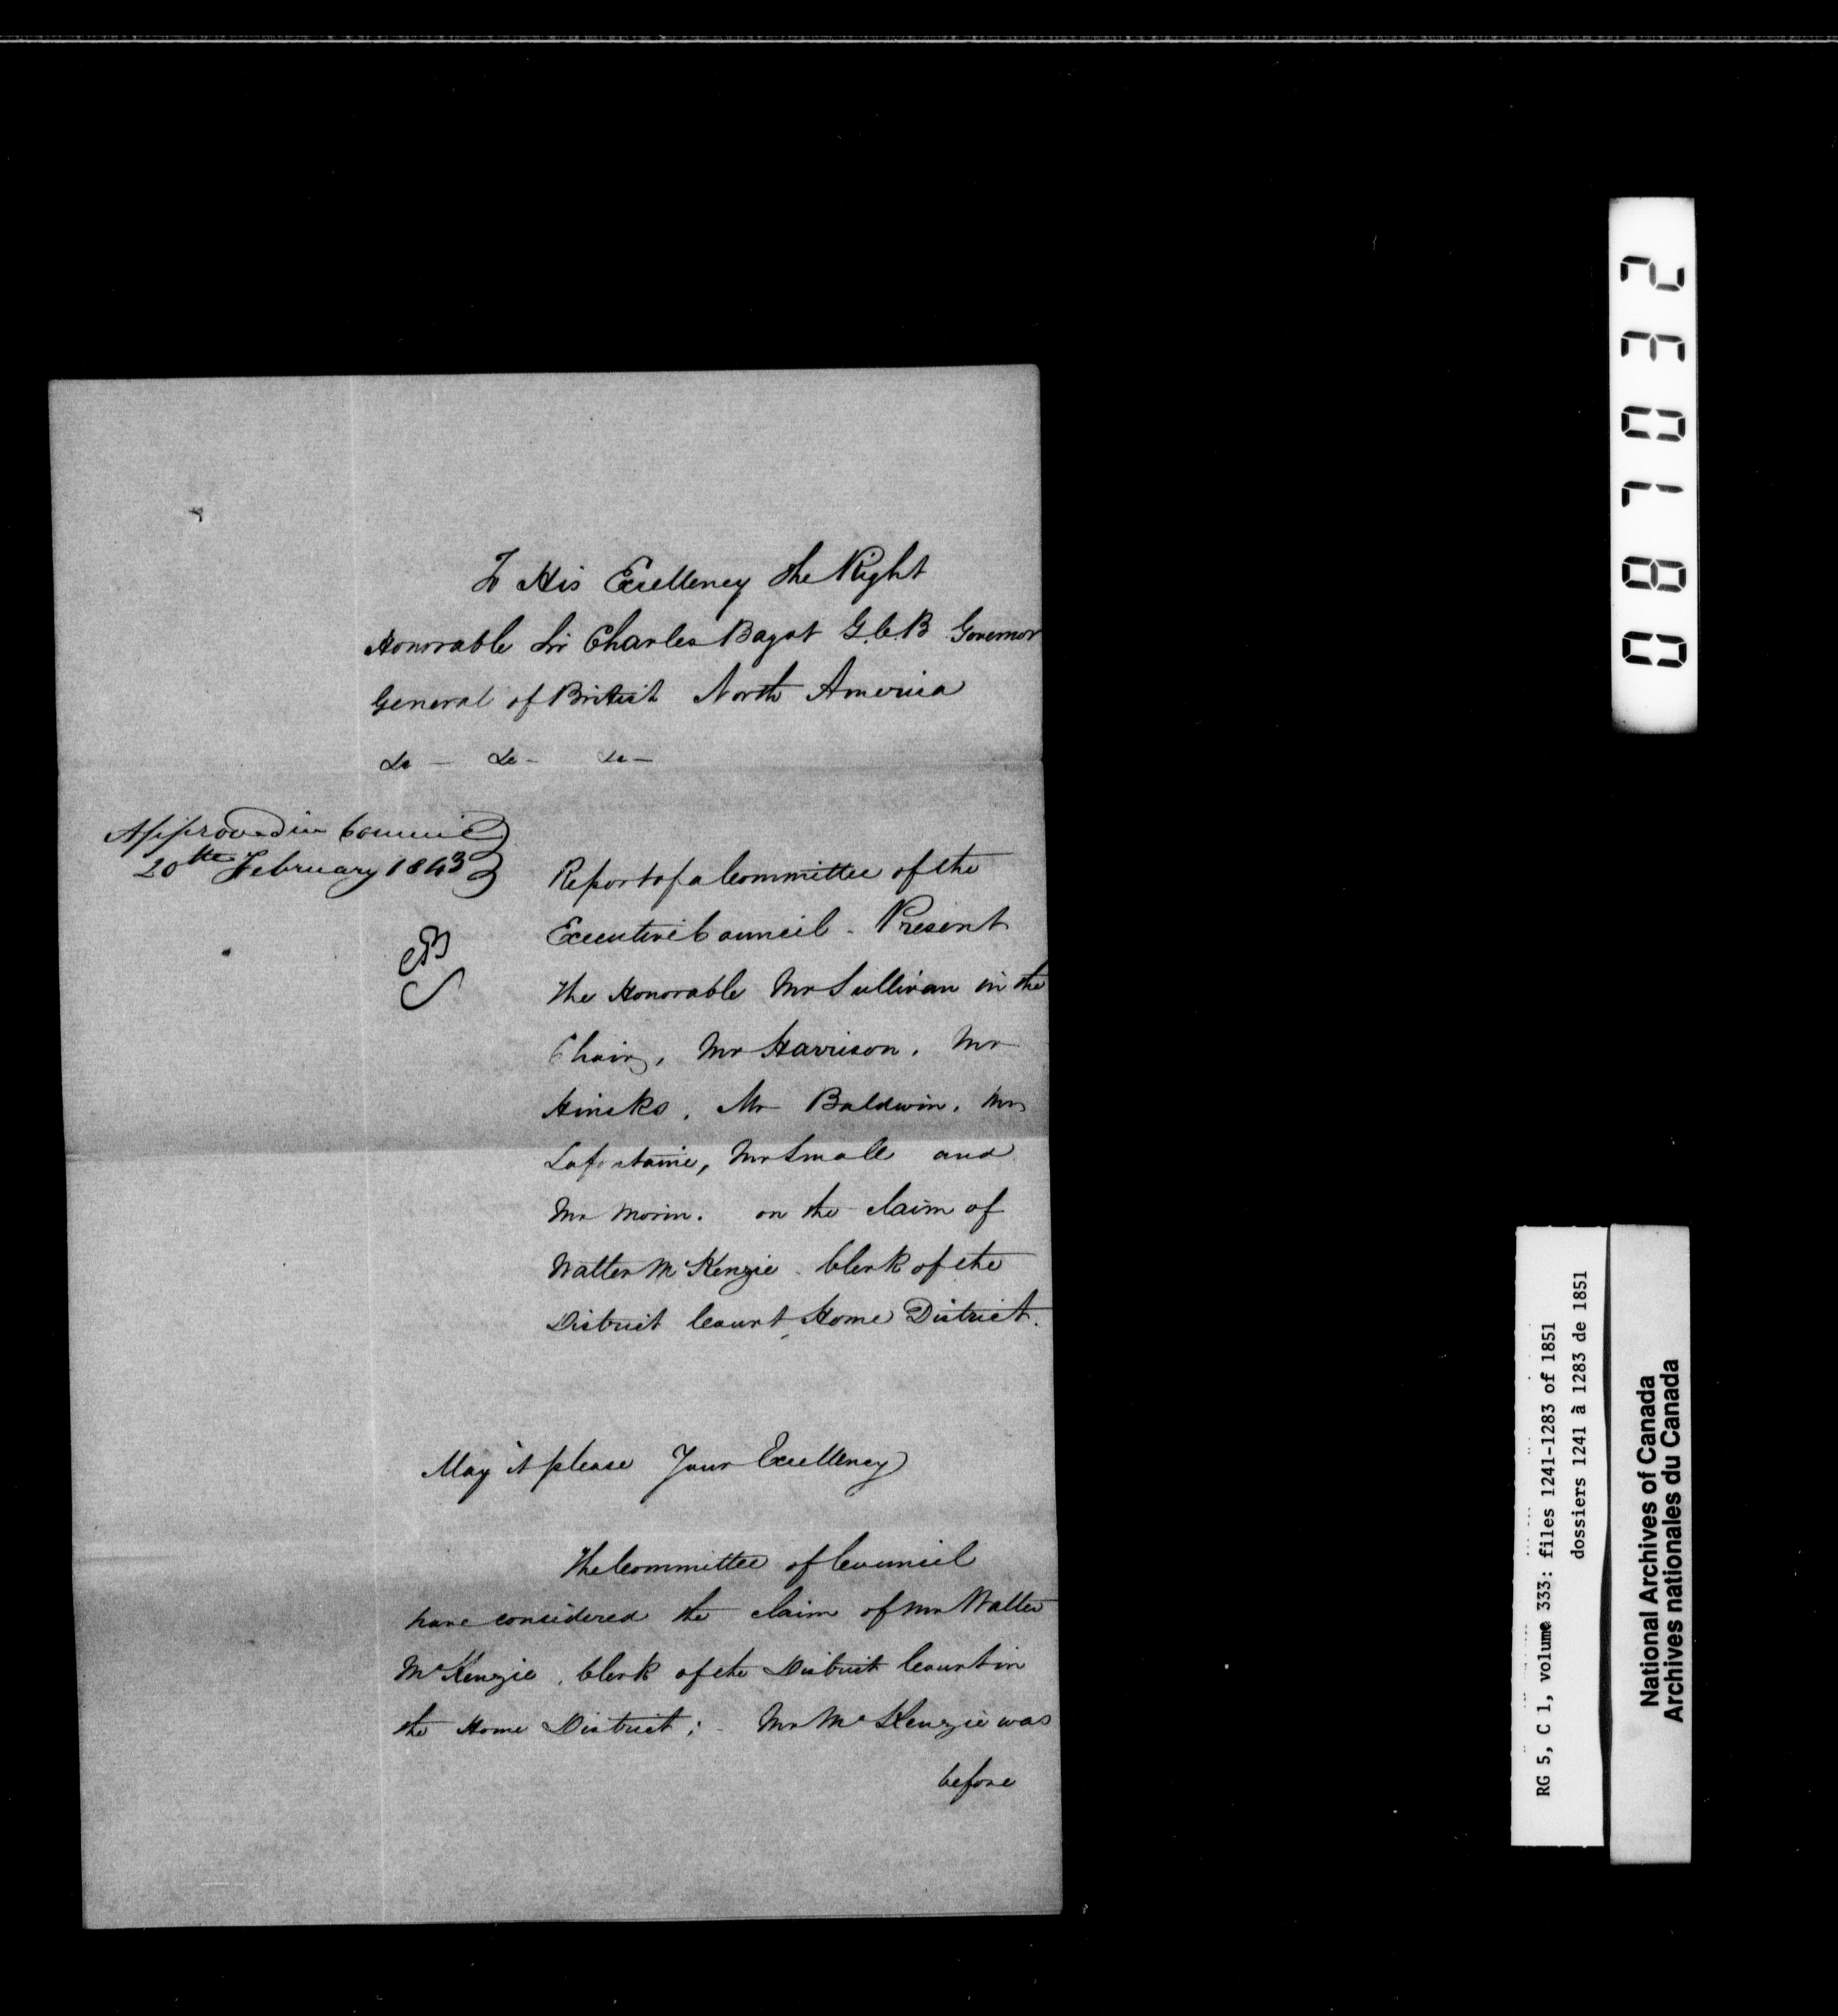 To His Excellency the Right
Honorable Sir Charles Bagot G.C.B Governor
General of British North America
&c — &c — &c —
Approved in Council
20th February 1843
CB
Report of a Committee of the
Executive Council - Present
The Honorable Mr Sullivan in the
Chair, Mr Harrison, Mr
Hincks, Mr Baldwin, Mr
Lafontaine, Mr Small and
Mr Morin. on the claim of
Walter McKenzie Clerk of the
District Court, Home District.
May it please Your Excellency
The Committee of Council
have considered the claim of Mr Walter
McKenzie, Clerk of the District Court in
the Home District; - Mr McKenzie was
before
087032
RG 5, C 1, volume 333: files 1241-1283 of 1851
dossiers 1241 à 1283 de 1851
National Archives of Canada
Archives nationales du Canada